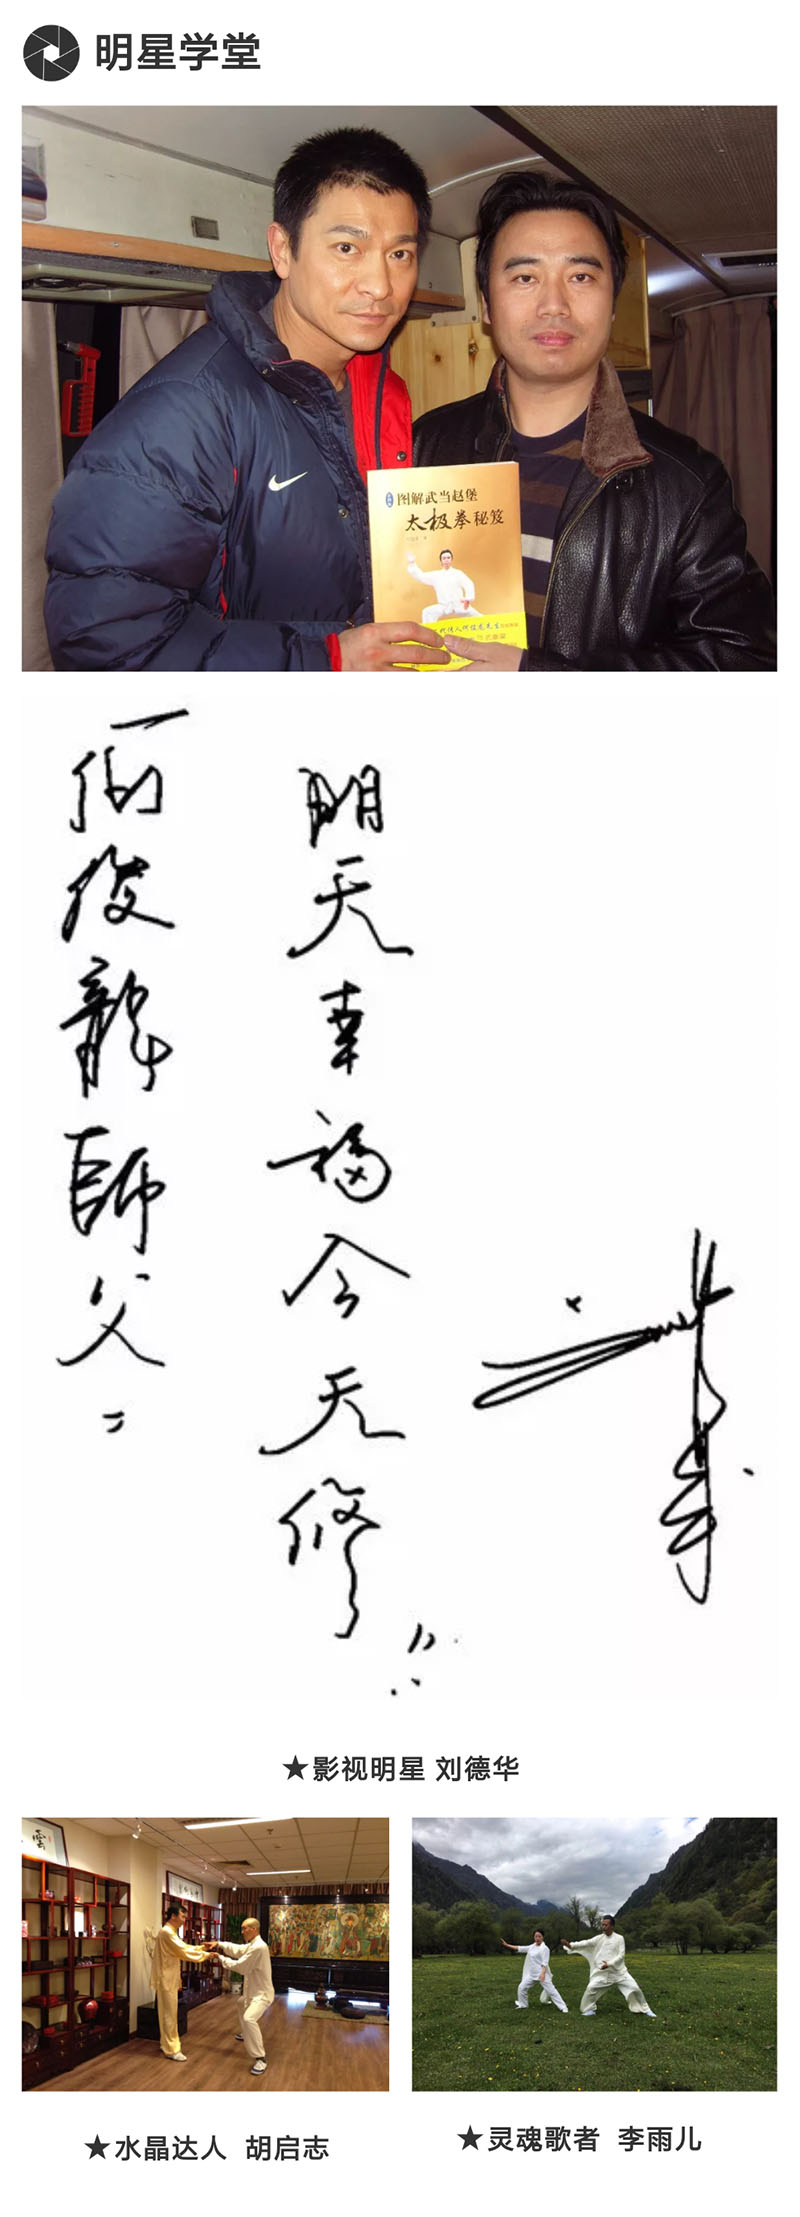 明星学堂
图解武当赵堡
太极拳秘笈
何俊龍師父
明天幸福今天修
★影视明星 刘德华
★水晶达人 胡启志
★灵魂歌者 李雨儿